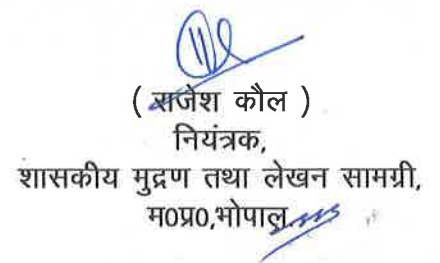 ( राजेश कौल )
नियंत्रक,
शासकीय मुद्रण तथा लेखन सामग्री,
म0प्र0,भोपाल